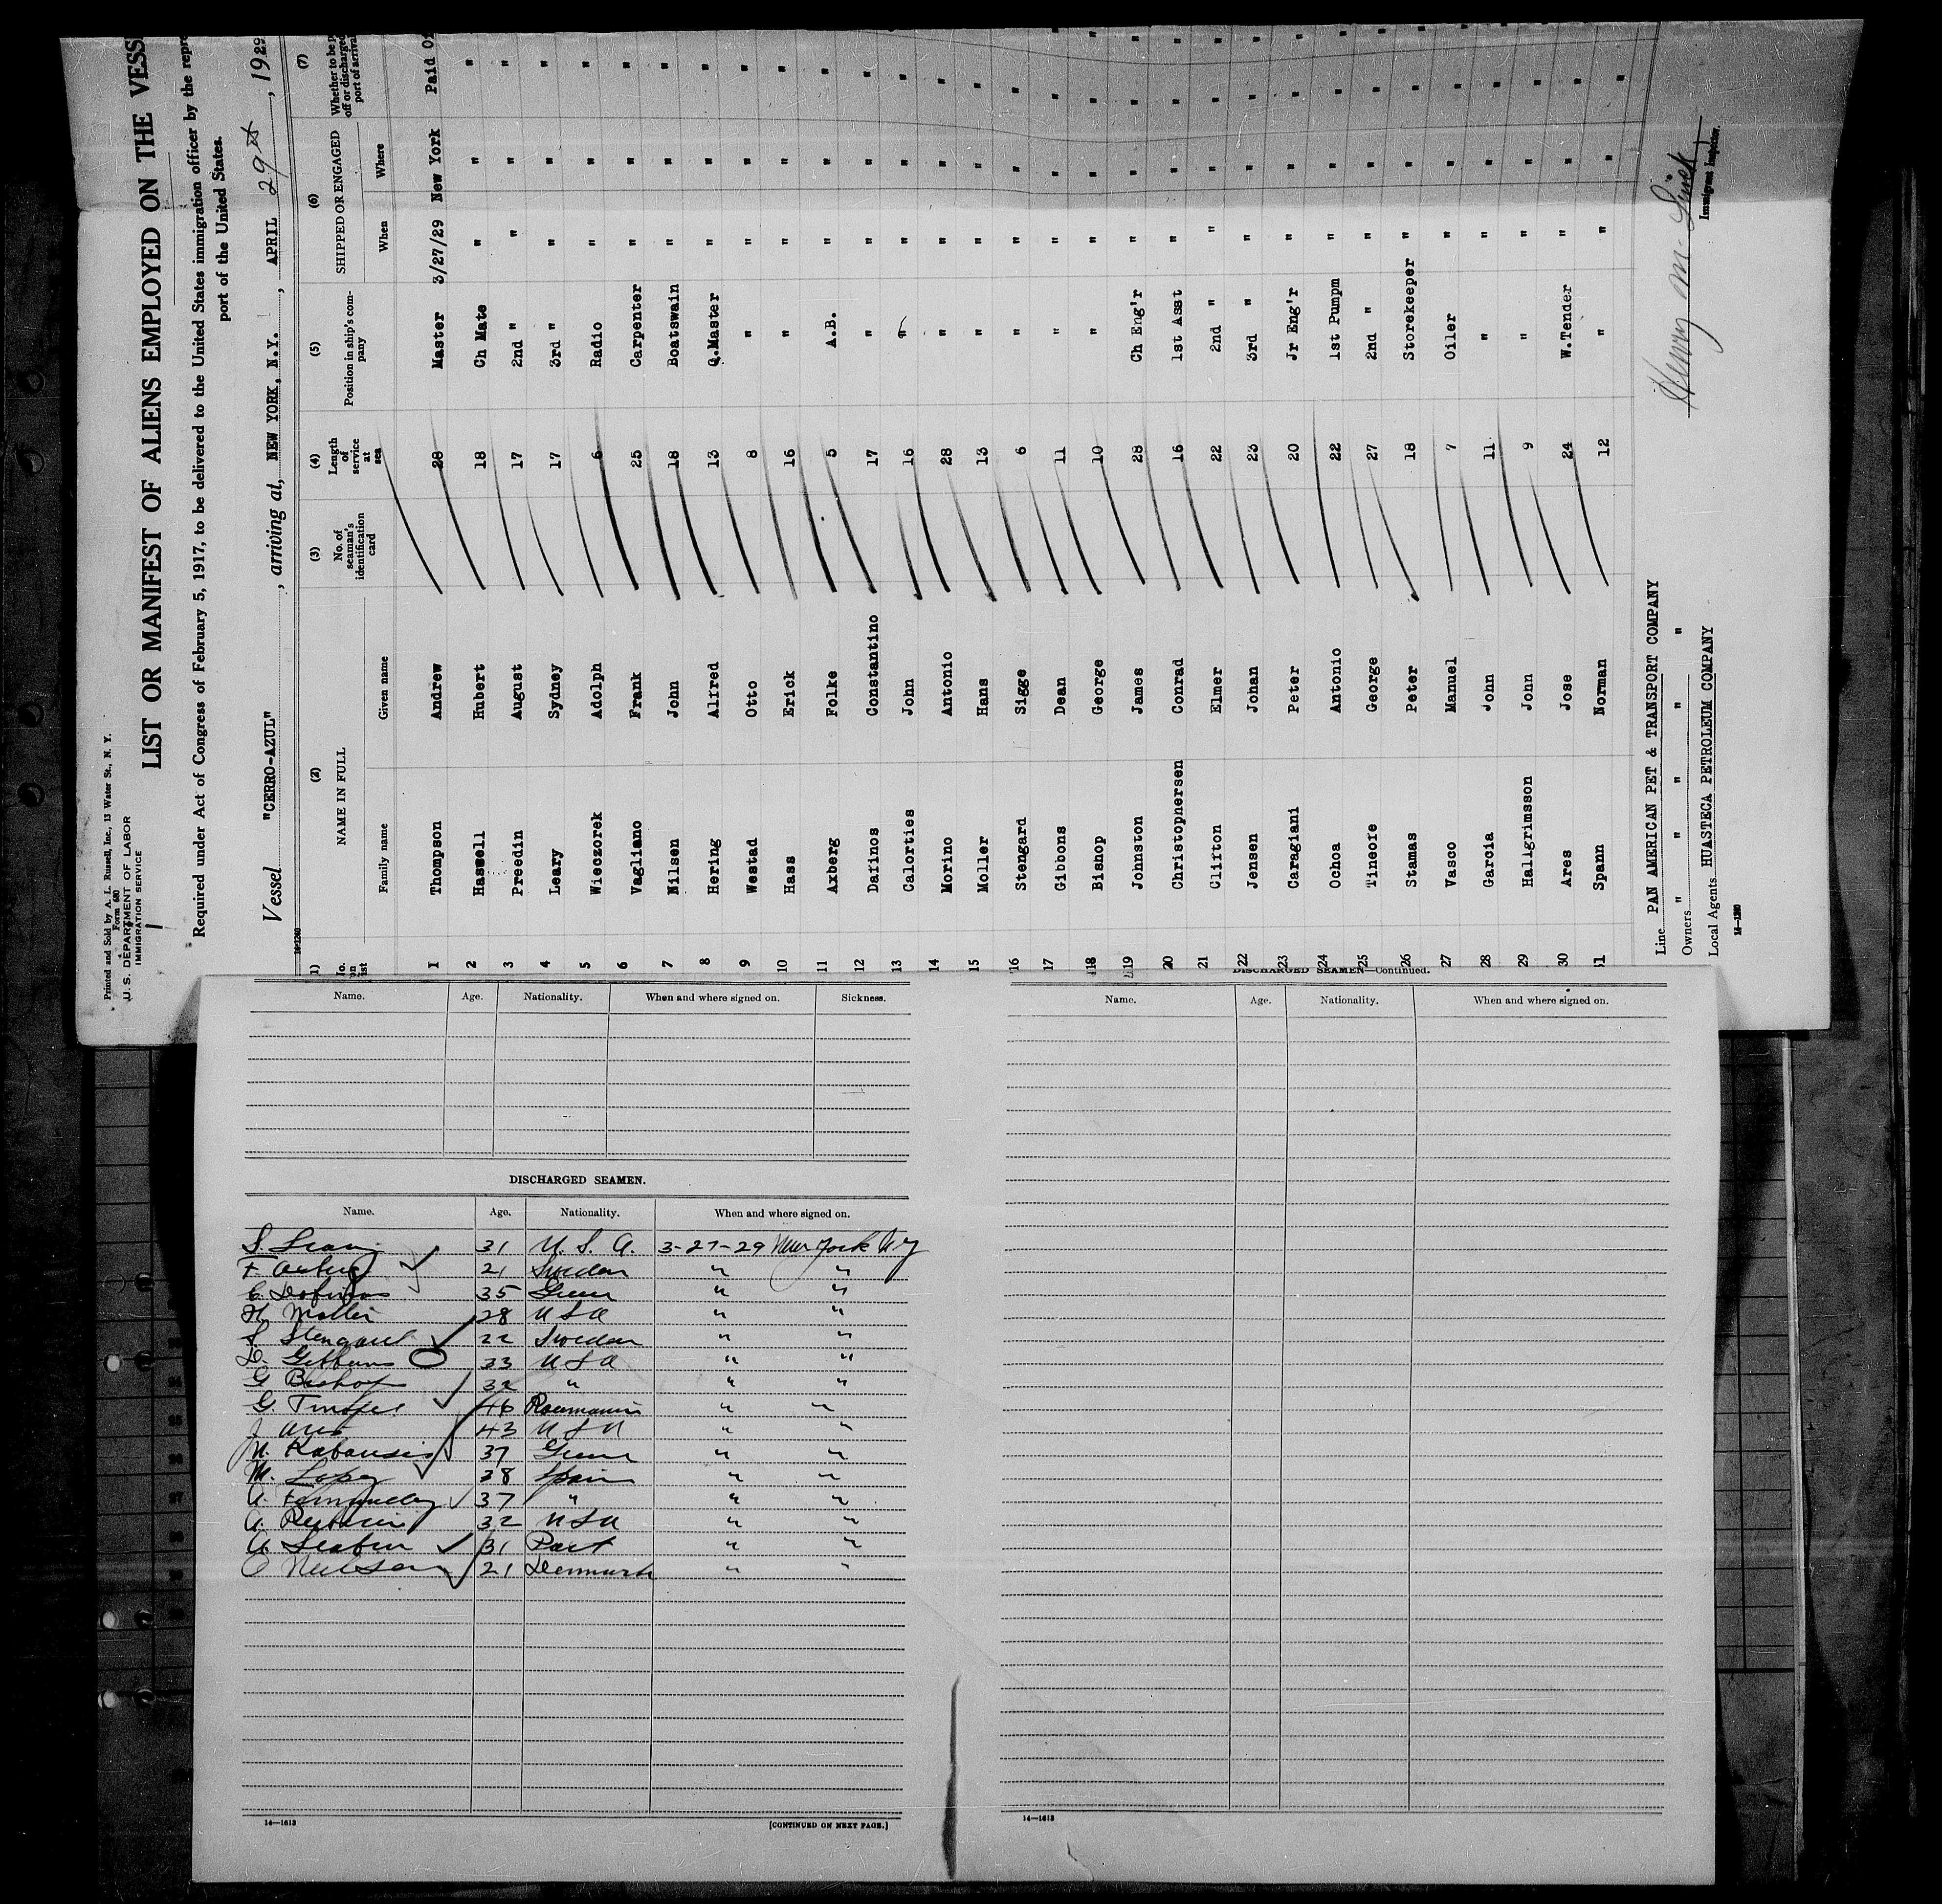 Printed and Sold by A. L. Russell, Inc., 13 Water St., N. Y.
Form 680
U. S. DEPARTMENT OF LABOR
IMMIGRATION SERVICE
LIST OR MANIFEST OF ALIENS EMPLOYED ON THE VESS
Required under Act of Congress of February 5, 1917, to be delivered to the United States immigration officer by the repre
port of the United States.
Vessel "CERRO-AZUL", arriving at, NEW YORK, N.Y., APRIL 29th, 1929
14-1240
1) (2) (3) (4) (5) (6) (7)
No. on list NAME IN FULL No. of seaman's identification card Length of service at sea Position in ship's company SHIPPED OR ENGAGED Whether to be p off or discharged port of arrival
Family name Given name When Where
1 Thompson Andrew 28 Master 3/27/29 New York Paid Of
2 Hassell Hubert 18 Ch Mate " " "
3 Preedin August 17 2nd " " " "
4 Leary Sydney 17 3rd " " " "
5 Wieczorek Adolph 6 Radio " " "
6 Vagliano Frank 25 Carpenter " " "
7 Nilsen John 18 Boatswain " " "
8 Hering Alfred 13 Q.Master " " "
9 Westad Otto 8 " " " "
10 Hass Erick 16 " " " "
11 Axberg Folke 5 A.B. " " "
12 Dafinos Constantino 17 " " " "
13 Calorties John 16 " " " "
14 Morino Antonio 28 " " " "
15 Moller Hans 13 " " " "
16 Stengard Sigge 6 " " " "
17 Gibbons Dean 11 " " " "
18 Bishop George 10 " " " "
19 Johnston James 28 Ch Eng'r " " "
20 Christophersen Conrad 16 1st Asst " " "
21 Clifton Elmer 22 2nd " " " "
22 Jensen Johan 23 3rd " " " "
23 Caragiani Peter 20 Jr Eng'r " " "
24 Ochoa Antonio 22 1st Pumpm " " "
25 Tineofe George 27 2nd " " " "
26 Stamas Peter 18 Storekeeper " " "
27 Vasco Manuel 7 Oiler " " "
28 Garcia John 11 " " " "
29 Hallgrimsson John 9 " " " "
30 Ares Jose 24 W.Tender " " "
31 Spann Norman 12 " " " "
Line PAN AMERICAN PET & TRANSPORT COMPANY
Owners " " " " "
Local Agents HUASTECA PETROLEUM COMPANY
14-1240
Henry M.
Immigrant Inspector.
Name. Age. Nationality. When and where signed on. Sickness.
DISCHARGED SEAMEN.
Name. Age. Nationality. When and where signed on.
S. Leary 31 U. S. A. 3-27-29 New York N Y
F. Axberg 21 Sweden " "
C. Dafinos 35 Greece " "
H. Moller 28 U S A " "
S Stengard 22 Sweden " "
D. Gibbons 33 U S A " "
G Bishop 32 " " "
G. 46 Roumania " "
J Ares 43 U S A " "
37 Greece " "
M. Lopez 38 Spain " "
A. Fernandez 37 " " "
A. 32 U S A " "
A. 31 Port " "
21 Denmark " "
14—1613
[CONTINUED ON NEXT PAGE.]
DISCHARGED SEAMEN—Continued.
Name. Age. Nationality. When and where signed on.
14—1613